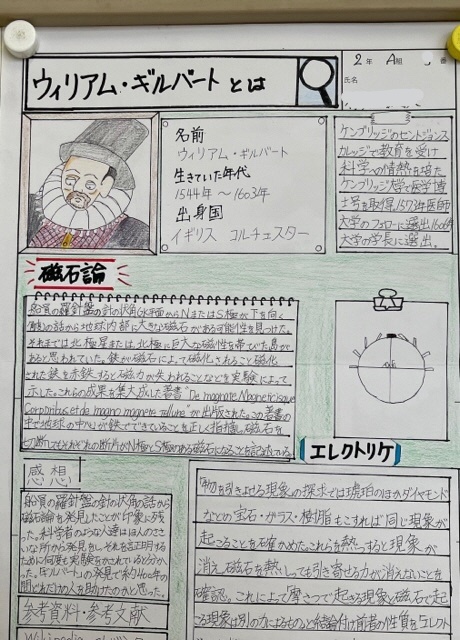 ウィリアム・ギルバートとは
2年 A組 番
氏名
名前
ウィリアム・ギルバート
生きていた年代
1544年 ～ 1603年
出身国
イギリス コルチェスター
ケンブリッジのセントジョンス
カレッジで教育を受け
科学への情熱を培た
ケンブリッジ大学で医学博
士号を取得。1573年医師
大学のフェローに選出。1600年
大学の学長に選出。
磁石論
船員の羅針盤の針の伏角(水平面からNまたはS極が下を向く
の話から地球内部に大きな磁石がある可能性を見つけた。
それまでは北極星または北極に巨大な磁性を帯びた島が
あると思われていた。鉄が磁石によって磁化されること磁化
された鉄を赤鉄すると磁力が失われることなどを実験によって
示した。これらの成果を集大成した著書"De magnate, Magneticisque
Corporibus et de magno magnete tellure"が出版された。この著書の
中で地球の中心が鉄でできていることを正しく指摘し磁石を
切断してもそれぞれの断片がN極とS極のある磁石になることを記述している
エレクトリケ
物を引きよせる現象の探求では琥珀のほかダイヤモンド
などの宝石・ガラス・樹脂もこすれば同じ現象が
起こることを確かめた。これらを熱っすると現象が
消え磁石を熱しても引き寄せる力が消えないことを
確認。これによて摩さつで起きる現象と磁石で起
こる現象は別の力によるものと結論付け前者の性質をエレクト
感想
船員の羅針盤の針の伏角の話から
磁石論を発見したことが印象に残
った。科学者のような人達はほんのささ
いな所から発見をし、それを証明する
ために何度も実験をかされていると分かっ
た。「ギルバート」の発見で約400年の
間どれだけの人を助けたのかと思った。
参考資料・参考文献
Wikipedia